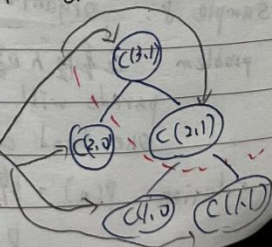 C(3,1)
C(2,0)
C(2,1)
C(1,0)
C(1,1)